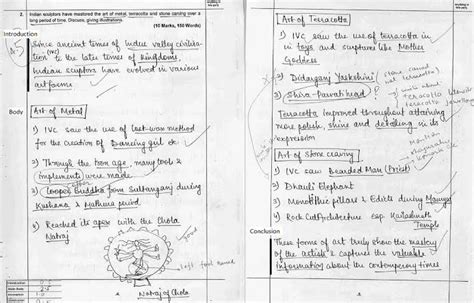 2. Indian sculptors have mastered the art of metal, terracotta and stone carving over a
long period of time. Discuss, giving illustrations.
(10 Marks, 150 Words)
Introduction
Since ancient times of Indus valley civiliza-
tion (IVC) to the later times of kingdoms,
Indian sculptors have evolved in various
art forms
Body
Art of Metal
1) IVC saw the use of lost-wax method
for the creation of Dancing girl etc.
2) Through the Iron age, many tools &
implements were made
3) Copper Buddha from Sultanganj during
Kushana & Mathura period
4) Reached its apex with the Chola
Natraj
Left foot raised
Natraj of Chola
Art of Terracotta
1) IVC saw the use of terracotta in
in toys and sculptures like Mother
Goddess
2) Didarganj Yakshini
stone carved
not terracotta
3) Shiva-Parvati head
write about
terracotta
terracotta
Terracotta improved throughout attaining
more polish, shine and detailing in its
expression
Art of Stone craving
1) IVC saw Bearded Man (Priest)
2) Dhauli Elephant
3) Monolithic pillars & Edicts during Mauryan
4) Rock Cut Architecture esp Kailashnath
Temple
Conclusion
These forms of art truly show the mastery
of the artists & captures the valuable
information about the contemporary times